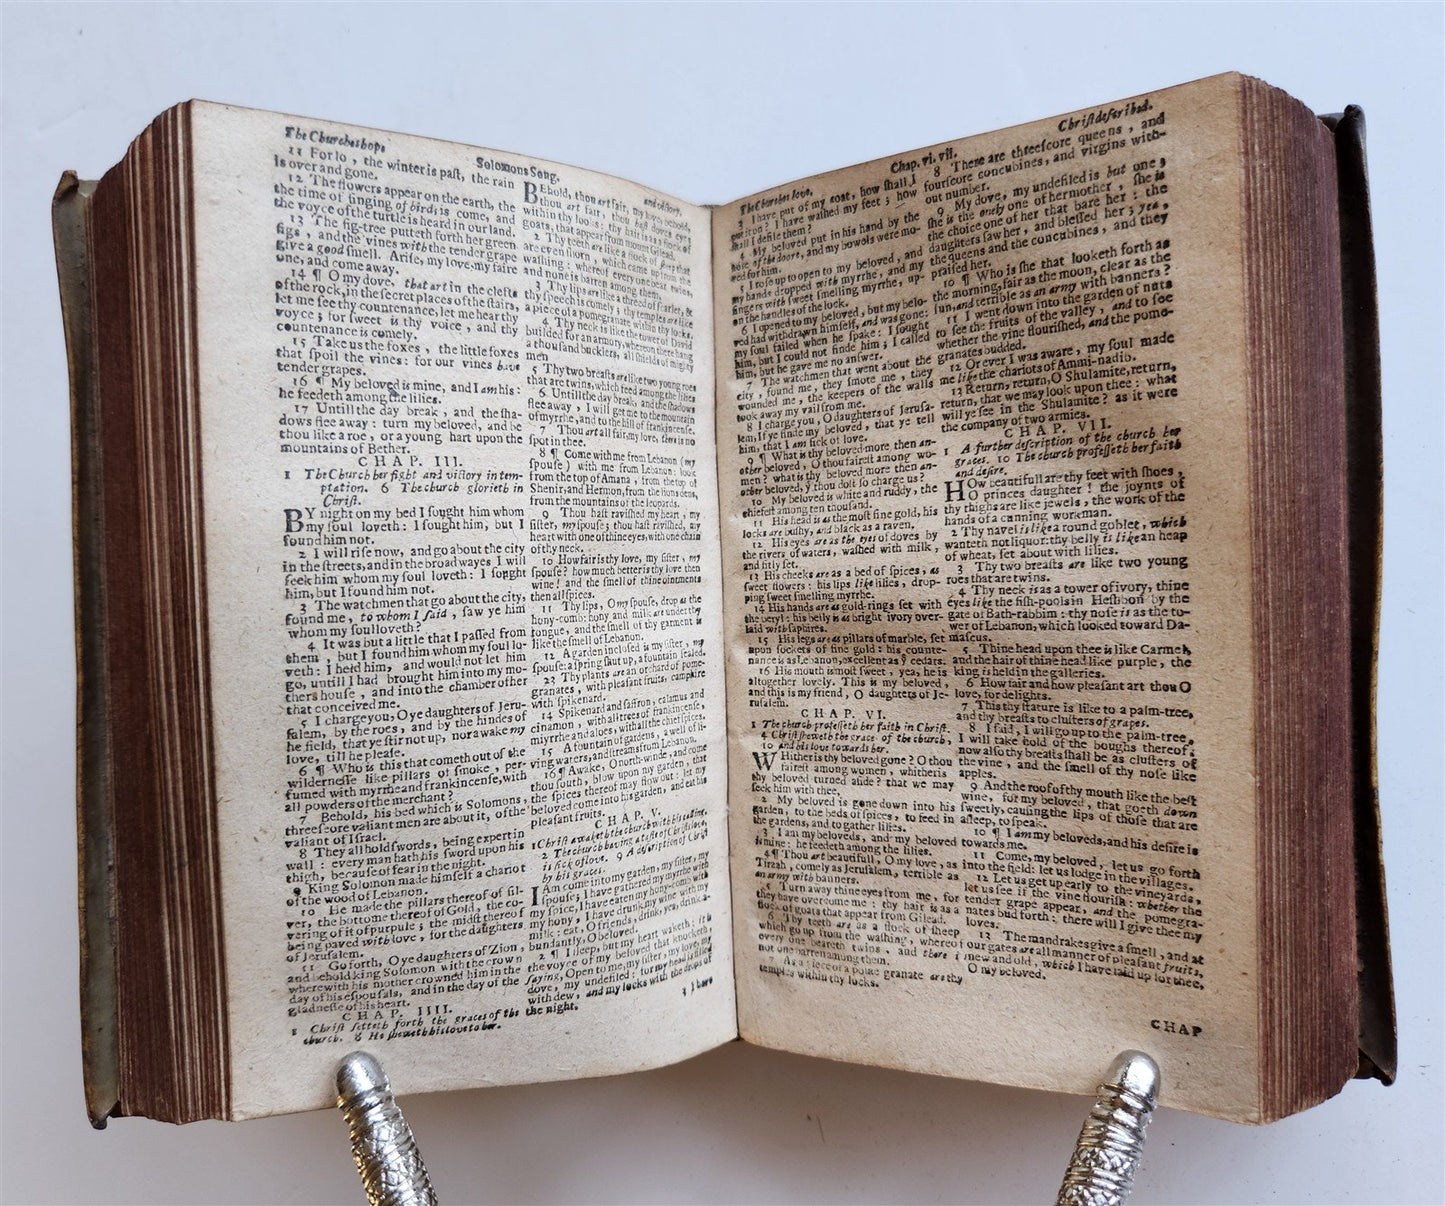 The Churches hope
Solomons Song.
and victory.
11 For lo , the winter is past, the rain
is over and gone.
12 The flowers appear on the earth, the
the time of singing of birds is come, and
the voyce of the turtle is heard in our land.
13 The fig-tree putteth forth her green
figs , and the vines with the tender grape
give a good smell. Arise, my love, my faire
one, and come away.
14 ¶ O my dove, that art in the clefts
of the rock, in the secret places of the stairs,
let me see thy countenance, let me hear thy
voyce ; for sweet is thy voice , and thy
countenance is comely.
15 Take us the foxes , the little foxes
that spoil the vines : for our vines have
tender grapes.
16 ¶ My beloved is mine, and I am his :
he feedeth among the lilies.
17 Untill the day break , and the sha-
dows flee away : turn my beloved, and be
thou like a roe , or a young hart upon the
mountains of Bether.
CHAP. III.
1 The Church her fight and victory in tem-
ptation. 6 The church glorieth in
Christ.
BY night on my bed I sought him whom
my soul loveth : I sought him, but I
found him not.
2 I will rise now, and go about the city
in the streets, and in the broad wayes I will
seek him whom my soul loveth : I sought
him, but I found him not.
3 The watchmen that go about the city,
found me, to whom I said , saw ye him
whom my soul loveth ?
4 It was but a little that I passed from
them , but I found him whom my soul lo-
veth : I held him, and would not let him
go, untill I had brought him into my mo-
thers house , and into the chamber of her
that conceived me.
5 I charge you, O ye daughters of Jeru-
salem, by the roes , and by the hindes of
he field, that ye stir not up, nor awake my
love, till he please.
6 ¶ Who is this that cometh out of the
wildernesse like pillars of smoke , per-
fumed with myrrhe and frankincense, with
all powders of the merchant ?
7 Behold, his bed which is Solomons,
threescore valiant men are about it, of the
valiant of Israel.
8 They all hold swords, being expert in
wall : every man hath his sword upon his
thigh, because of fear in the night.
9 King Solomon made himself a chariot
of the wood of Lebanon.
10 He made the pillars thereof of sil-
ver, the bottome thereof of Gold, the co-
vering of it of purpule ; the midst thereof
being paved with love , for the daughters
of Jerusalem.
11 Go forth, O ye daughters of Zion,
and behold king Solomon with the crown
wherewith his mother crowned him in the
day of his espousals, and in the day of the
gladnesse of his heart.
CHAP. IIII.
1 Christ setteth forth the graces of the
church. 8 He sheweth his love to her.
BEhold, thou art fair, my love, behold,
thou art fair , thou hast doves eyes
within thy locks : thy hair is as a flock of
goats, that appear from mount Gilead.
2 Thy teeth are like a flock of sheep that
are even shorn , which came up from the
washing : whereof every one bear twins,
and none is barren among them.
3 Thy lips are like a thred of scarlet, &
thy speech is comely ; thy temples are like
a piece of a pomegranate within thy locks.
4 Thy neck is like the tower of David
builded for an armory, whereon there hang
a thousand bucklers, all shields of mighty
men
5 Thy two breasts are like two young roes
that are twins, which feed among the lilies
6 Untill the day break, and the shadows
flee away , I will get me to the mountain
of myrrhe, and to the hill of frankincense.
7 Thou art all fair, my love, there is no
spot in thee.
8 ¶ Come with me from Lebanon (my
spouse) with me from Lebanon: look
from the top of Amana , from the top of
Shenir, and Hermon, from the lions dens,
from the mountains of the leopards.
9 Thou hast ravished my heart , my
sister, my spouse ; thou hast ravished, my
heart with one of thine eyes, with one chain
of thy neck.
10 How fair is thy love, my sister , my
spouse ? how much better is thy love then
wine ! and the smell of thine ointments
then all spices.
11 Thy lips , O my spouse, drop as the
hony-comb: hony and milk are under thy
tongue, and the smell of thy garment is
like the smell of Lebanon.
12 A garden inclosed is my sister , my
spouse: a spring shut up, a fountain sealed.
13 Thy plants are an orchard of pome-
granates , with pleasant fruits, campire
with spikenard.
14 Spikenard and safron, calamus and
cinamon , with all trees of frankincense,
myrrhe and aloes, with all the chief spices.
15 A fountain of gardens , a well of li-
ving waters, and streams from Lebanon.
16 ¶ Awake, O north-winde, and come
thou south, blow upon my garden , that
the spices thereof may flow out : let my
beloved come into his garden, and eat his
pleasant fruits.
CHAP. V.
1 Christ awaketh the church with his calling.
2 The church having a taste of Christs love,
is sick of love. 9 A description of Christ
by his graces.
I Am come into my garden, my sister, my
spouse ; I have gathered my myrrhe with
my spice, I have eaten my hony-comb with
my hony , I have drunk my wine with my
milk : eat , O friends, drink, yea, drink a-
bundantly, O beloved.
2 ¶ I sleep, but my heart waketh : it is
the voyce of my beloved that knocketh ,
saying, Open to me, my sister, my love, my
dove, my undefiled : for my head is filled
with dew, and my locks with the drops of
the night.
3 I have
The Churches love.
Chap. vi. vii.
Christ described.
3 I have put of my coat, how shall I
put it on ? I have washed my feet ; how
shall I defile them ?
4 My beloved put in his hand by the
hole of the doore, and my bowels were mo-
ved for him.
5 I rose up to open to my beloved , and
my hands dropped with myrrhe, and my
fingers with sweet smelling myrrhe, up-
on the handles of the lock.
6 I opened to my beloved, but my belo-
ved had withdrawn himself, and was gone:
my soul failed when he spake : I sought
him, but I could not finde him ; I called
him, but he gave me no answer.
7 The watchmen that went about the
city , found me, they smote me , they
wounded me , the keepers of the walls
took away my vail from me.
8 I charge you, O daughters of Jerusa-
lem, If ye finde my beloved, that ye tell
him, that I am sick of love.
9 ¶ What is thy beloved more then an-
other beloved , O thou fairest among wo-
men ? what is thy beloved more then an-
other beloved, ỹ thou dost so charge us ?
10 My beloved is white and ruddy , the
chiefest among ten thousand.
11 His head is as the most fine gold, his
locks are bushy, and black as a raven.
12 His eyes are as the eyes of doves by
the rivers of waters, washed with milk ,
and fitly set.
13 His cheeks are as a bed of spices , as
sweet flowers : his lips like lilies , drop-
ping sweet smelling myrrhe.
14 His hands are as gold-rings set with
the beryl : his belly is as bright ivory over-
laid with saphires.
15 His legs are as pillars of marble, set
upon sockets of fine gold : his counte-
nance is as Lebanon, excellent as ỹ cedars.
16 His mouth is most sweet , yea, he is
altogether lovely. This is my beloved ,
and this is my friend , O daughters of Je-
rusalem.
CHAP. VI.
1 The church professeth her faith in Christ.
4 Christ sheweth the grace of the church,
10 and his love towards her.
WHither is thy beloved gone ? O thou
fairest among women , whither is
thy beloved turned aside ? that we may
seek him with thee.
2 My beloved is gone down into his
garden, to the beds of spices , to feed in
the gardens, and to gather lilies.
3 I am my beloveds, and my beloved
is mine : he feedeth among the lilies.
4 ¶ Thou art beautifull, O my love , as
Tirzah, comely as Jerusalem, terrible as
an army with banners.
5 Turn away thine eyes from me, for
they have overcome me : thy hair is as a
flock of goats that appear from Gilead.
6 Thy teeth are as a flock of sheep
which go up from the washing, whereof
every one beareth twins , and there is
not one barren among them.
7 As a piece of a pome granate are thy
temples within thy locks.
8 There are threescore queens , and
fourscore concubines, and virgins with-
out number.
9 My dove, my undefiled is but one ;
she is the onely one of her mother , she is
the choice one of her that bare her : the
daughters saw her, and blessed her ; yea,
the queens and the concubines, and they
praised her.
10 ¶ Who is she that looketh forth as
the morning, fair as the moon, clear as the
sun, and terrible as an army with banners ?
11 I went down into the garden of nuts
to see the fruits of the valley , and to see
whether the vine flourished, and the pome-
granates budded.
12 Or ever I was aware , my soul made
me like the chariots of Ammi-nadib.
13 Return, return, O Shulamite, return,
return, that we may look upon thee : what
will ye see in the Shulamite ? as it were
the company of two armies.
CHAP. VII.
1 A further description of the church her
graces. 10 The church professeth her faith
and desire.
HOw beautifull are thy feet with shoes ,
O princes daughter ! the joynts of
thy thighs are like jewels , the work of the
hands of a canning workman.
2 Thy navel is like a round goblet, which
wanteth not liquor: thy belly is like an heap
of wheat, set about with lilies.
3 Thy two breasts are like two young
roes that are twins.
4 Thy neck is as a tower of ivory, thine
eyes like the fish-pools in Heshbon by the
gate of Bath-rabbim : thy nose is as the to-
wer of Lebanon, which looked toward Da-
mascus.
5 Thine head upon thee is like Carmel,
and the hair of thine head like purple , the
king is held in the galleries.
6 How fair and how pleasant art thou O
love, for delights.
7 This thy stature is like to a palm-tree,
and thy breasts to clusters of grapes.
8 I said, I will go up to the palm-tree,
I will take hold of the boughs thereof :
now also thy breasts shall be as clusters of
the vine , and the smell of thy nose like
apples.
9 And the roof of thy mouth like the best
wine, for my beloved , that goeth down
sweetly, causing the lips of those that are
asleep, to speak.
10 ¶ I am my beloveds, and his desire is
towards me.
11 Come, my beloved , let us go forth
into the field: let us lodge in the villages.
12 Let us get up early to the vineyards,
let us see if the vine flourish: whether the
tender grape appear, and the pomegra-
nates bud forth : there will I give thee my
loves.
13 The mandrakes give a smell, and at
our gates are all manner of pleasant fruits,
new and old, which I have laid up for thee,
O my beloved.
CHAP